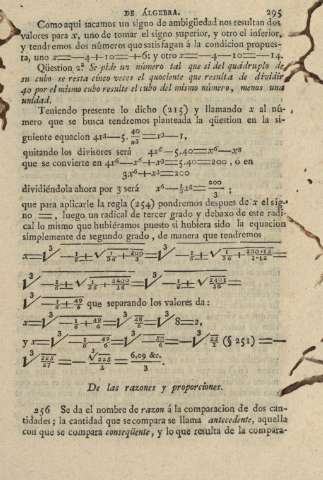 DE ÁLGEBRA. 295
Como aqui sacamos un signo de ambigüedad nos resultan dos
valores para x, uno de tomar el signo superior, y otro el inferior,
y tendremos dos números que satisfagan á la condicion propues-
ta, uno x=—4+10=+6; y otro x=—4—10=—14.
Qüestion 2.ª Se pide un número tal que si del quadruplo de
su cubo se resta cinco veces el quociente que resulta de dividir
40 por el mismo cubo resulte el cubo del mismo número, menos una
unidad.
Teniendo presente lo dicho (215) y llamando x al nú-
mero que se busca tendremos planteada la qüestion en la si-
guiente equacion 4x³—5. 40/x³ =x³—1,
quitando los divisores será 4x⁶—5.40=x⁶—x³
que se convierte en 4x⁶—x⁶+x³=5.40=200, ó en
3x⁶+x³=200
dividiéndola ahora por 3 será x⁶+⅓x³= 200/3 ;
que para aplicarle la regla (254) pondremos despues de x el sig-
no =, luego un radical de tercer grado y debaxo de este radi-
cal lo mismo que hubiéramos puesto si hubiera sido la equacion
simplemente de segundo grado, de manera que tendremos
que separando los valores da:
De las razones y proporciones.
256 Se da el nombre de razon á la comparacion de dos can-
tidades; la cantidad que se compara se llama antecedente, aquella
con que se compara conseqüente, y lo que resulta de la compara-